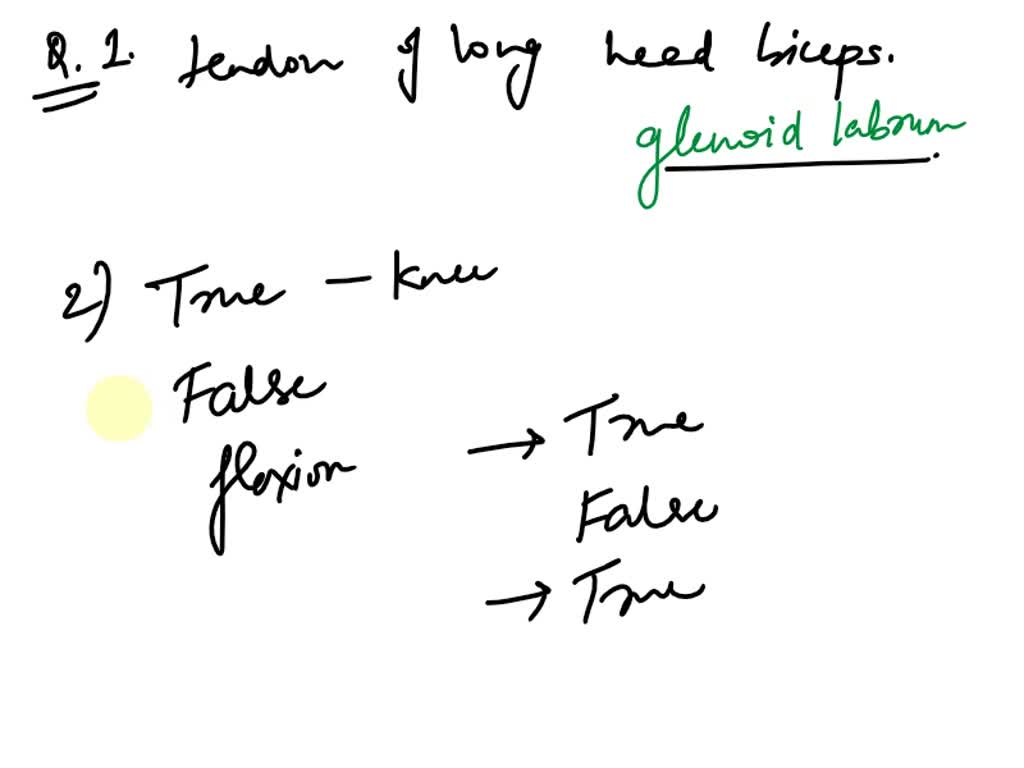 Q. 1. tendon of long head biceps.
glenoid labrum
2) True - Knee
False
flexion → True
False
→ True